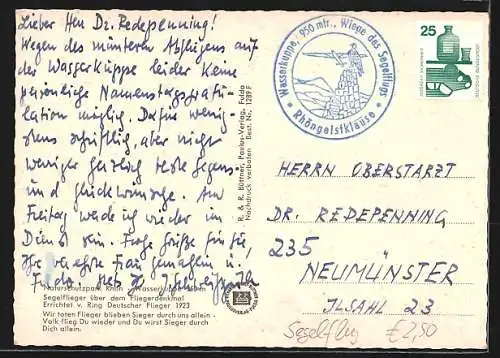 Lieber Herr Dr. Redepenning!
Wegen des munteren Abfluges auf
der Wasserkuppe leider keine
persönliche Namenstagsgratu-
lation möglich. Dafür wenig-
stens schriftlich, aber nicht
weniger herzlich beste Segens-
und Glückwünsche. Am
Freitag werde ich wieder im
Dienst sein. Frohe Grüße für Sie,
Ihre verehrte Frau Gemahlin u.
Naturschutzpark Rhön Wasserkuppe
Segelflieger über dem Fliegerdenkmal
Errichtet v. Ring Deutscher Flieger 1923
Wir toten Flieger blieben Sieger durch uns allein -
Volk flieg Du wieder und Du wirst Sieger durch
Dich allein.
R. & R. Büttner, Paulus-Verlag, Fulda
Nachdruck verboten Best. Nr. 1289 F
Wasserkuppe, 950 mtr., Wiege des Segelflugs
Rhöngeistklause
25
HERRN OBERSTARZT
DR. REDEPENNING
235
NEUMÜNSTER
ILSAHL 23
Segelflug €2,50